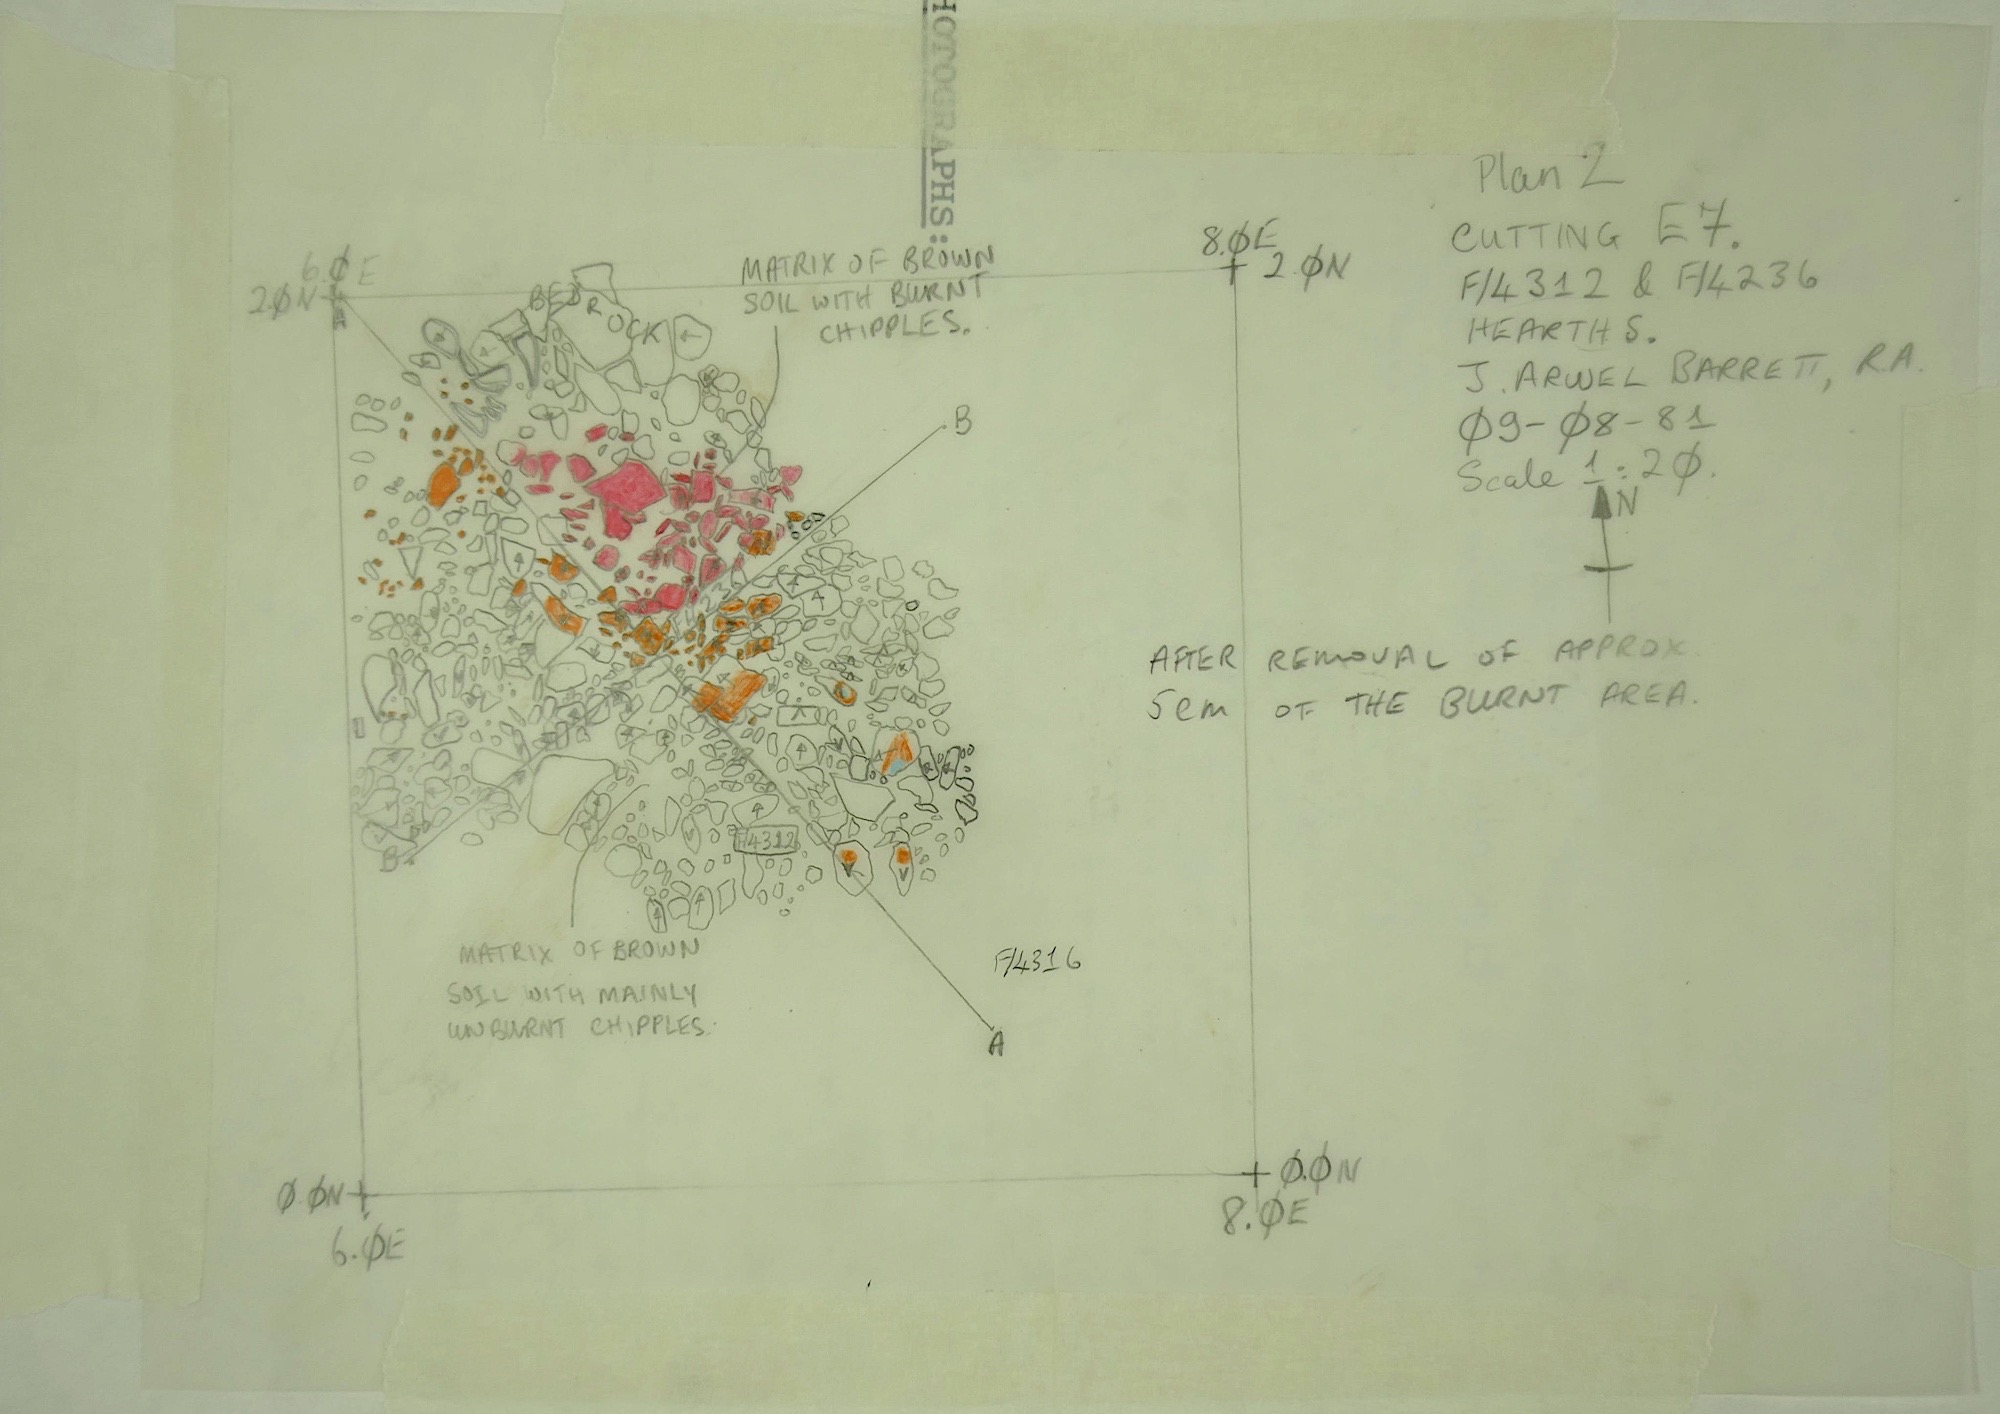 HOTOGRAPHS:
Plan 2
CUTTING E7.
F/4312 & F/4236
HEARTHS.
J. ARWEL BARRETT, R.A.
Ø9-Ø8-81
Scale 1:2Ø.
N
AFTER REMOVAL OF APPROX.
5cm OF THE BURNT AREA.
6.Ø E
2.ØN
8.ØE
2.ØN
MATRIX OF BROWN
SOIL WITH BURNT
CHIPPLES.
BEDROCK
B
B
F/4312
MATRIX OF BROWN
SOIL WITH MAINLY
UNBURNT CHIPPLES.
F/4316
A
Ø.ØN
6.ØE
Ø.ØN
8.ØE